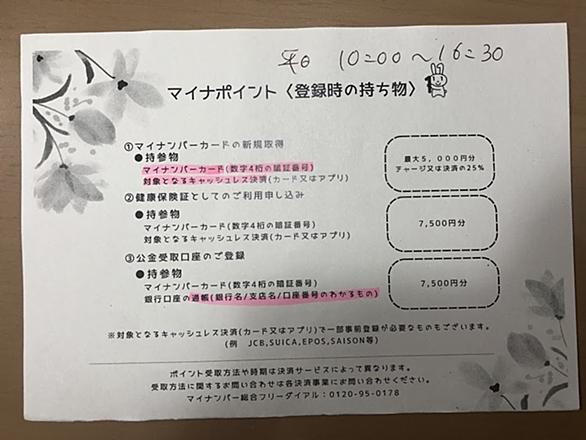 平日 10:00〜16:30
マイナポイント〈登録時の持ち物〉
①マイナンバーカードの新規取得
●持参物
マイナンバーカード(数字4桁の暗証番号)
対象となるキャッシュレス決済(カード又はアプリ)
最大5,000円分
チャージ又は決済の25%
②健康保険証としてのご利用申し込み
●持参物
マイナンバーカード(数字4桁の暗証番号)
対象となるキャッシュレス決済(カード又はアプリ)
7,500円分
③公金受取口座のご登録
●持参物
マイナンバーカード(数字4桁の暗証番号)
銀行口座の通帳(銀行名/支店名/口座番号のわかるもの)
7,500円分
※対象となるキャッシュレス決済(カード又はアプリ)で一部事前登録が必要なものもございます。
(例 JCB,SUICA,EPOS,SAISON等)
ポイント受取方法や時期は決済サービスによって異なります。
受取方法に関するお問い合わせは各決済事業にお問い合わせください。
マイナンバー総合フリーダイアル:0120-95-0178